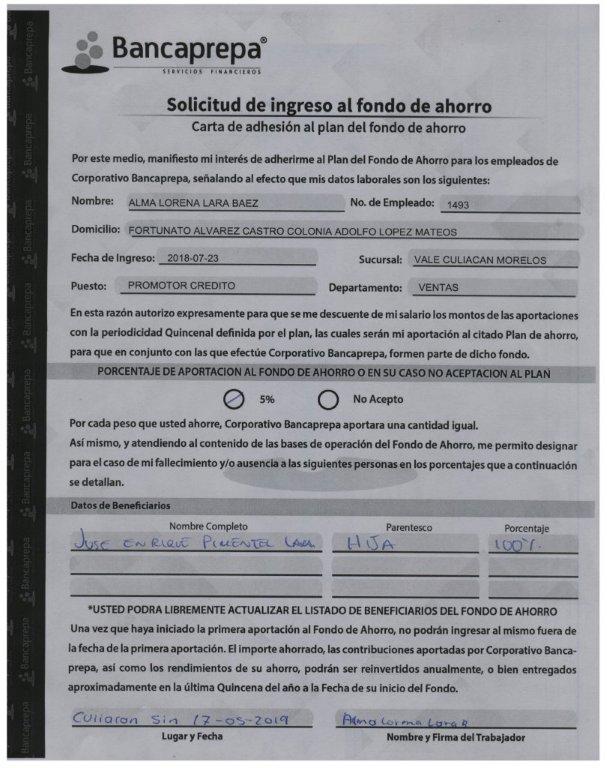 Bancaprepa®
SERVICIOS FINANCIEROS
Solicitud de ingreso al fondo de ahorro
Carta de adhesión al plan del fondo de ahorro
Por este medio, manifiesto mi interés de adherirme al Plan del Fondo de Ahorro para los empleados de
Corporativo Bancaprepa, señalando al efecto que mis datos laborales son los siguientes:
Nombre: ALMA LORENA LARA BAEZ No. de Empleado: 1493
Domicilio: FORTUNATO ALVAREZ CASTRO COLONIA ADOLFO LOPEZ MATEOS
Fecha de Ingreso: 2018-07-23 Sucursal: VALE CULIACAN MORELOS
Puesto: PROMOTOR CREDITO Departamento: VENTAS
En esta razón autorizo expresamente para que se me descuente de mi salario los montos de las aportaciones
con la periodicidad Quincenal definida por el plan, las cuales serán mi aportación al citado Plan de ahorro,
para que en conjunto con las que efectúe Corporativo Bancaprepa, formen parte de dicho fondo.
PORCENTAJE DE APORTACION AL FONDO DE AHORRO O EN SU CASO NO ACEPTACION AL PLAN
5% No Acepto
Por cada peso que usted ahorre, Corporativo Bancaprepa aportara una cantidad igual.
Así mismo, y atendiendo al contenido de las bases de operación del Fondo de Ahorro, me permito designar
para el caso de mi fallecimiento y/o ausencia a las siguientes personas en los porcentajes que a continuación
se detallan.
Datos de Beneficiarios
Nombre Completo Parentesco Porcentaje
JOSE ENRIQUE PIMENTEL LARA HIJA 100%
*USTED PODRA LIBREMENTE ACTUALIZAR EL LISTADO DE BENEFICIARIOS DEL FONDO DE AHORRO
Una vez que haya iniciado la primera aportación al Fondo de Ahorro, no podrán ingresar al mismo fuera de
la fecha de la primera aportación. El importe ahorrado, las contribuciones aportadas por Corporativo Banca-
prepa, así como los rendimientos de su ahorro, podrán ser reinvertidos anualmente, o bien entregados
aproximadamente en la última Quincena del año a la Fecha de su inicio del Fondo.
Culiacan Sin 17-05-2019 Alma Lorena Lara B.
Lugar y Fecha Nombre y Firma del Trabajador
Bancaprepa
Bancaprepa
Bancaprepa
Bancaprepa
Bancaprepa
Bancaprepa
Bancaprepa
Bancaprepa
Bancaprepa